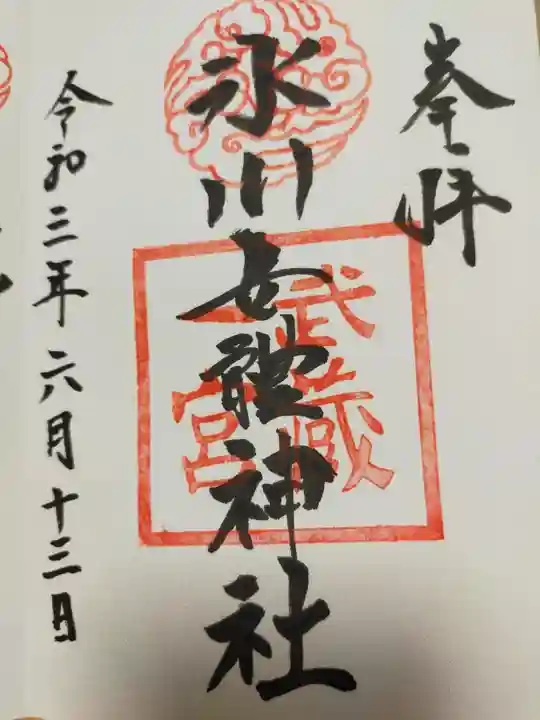 奉拝
氷川女體神社
武蔵
一宮
令和三年六月十三日